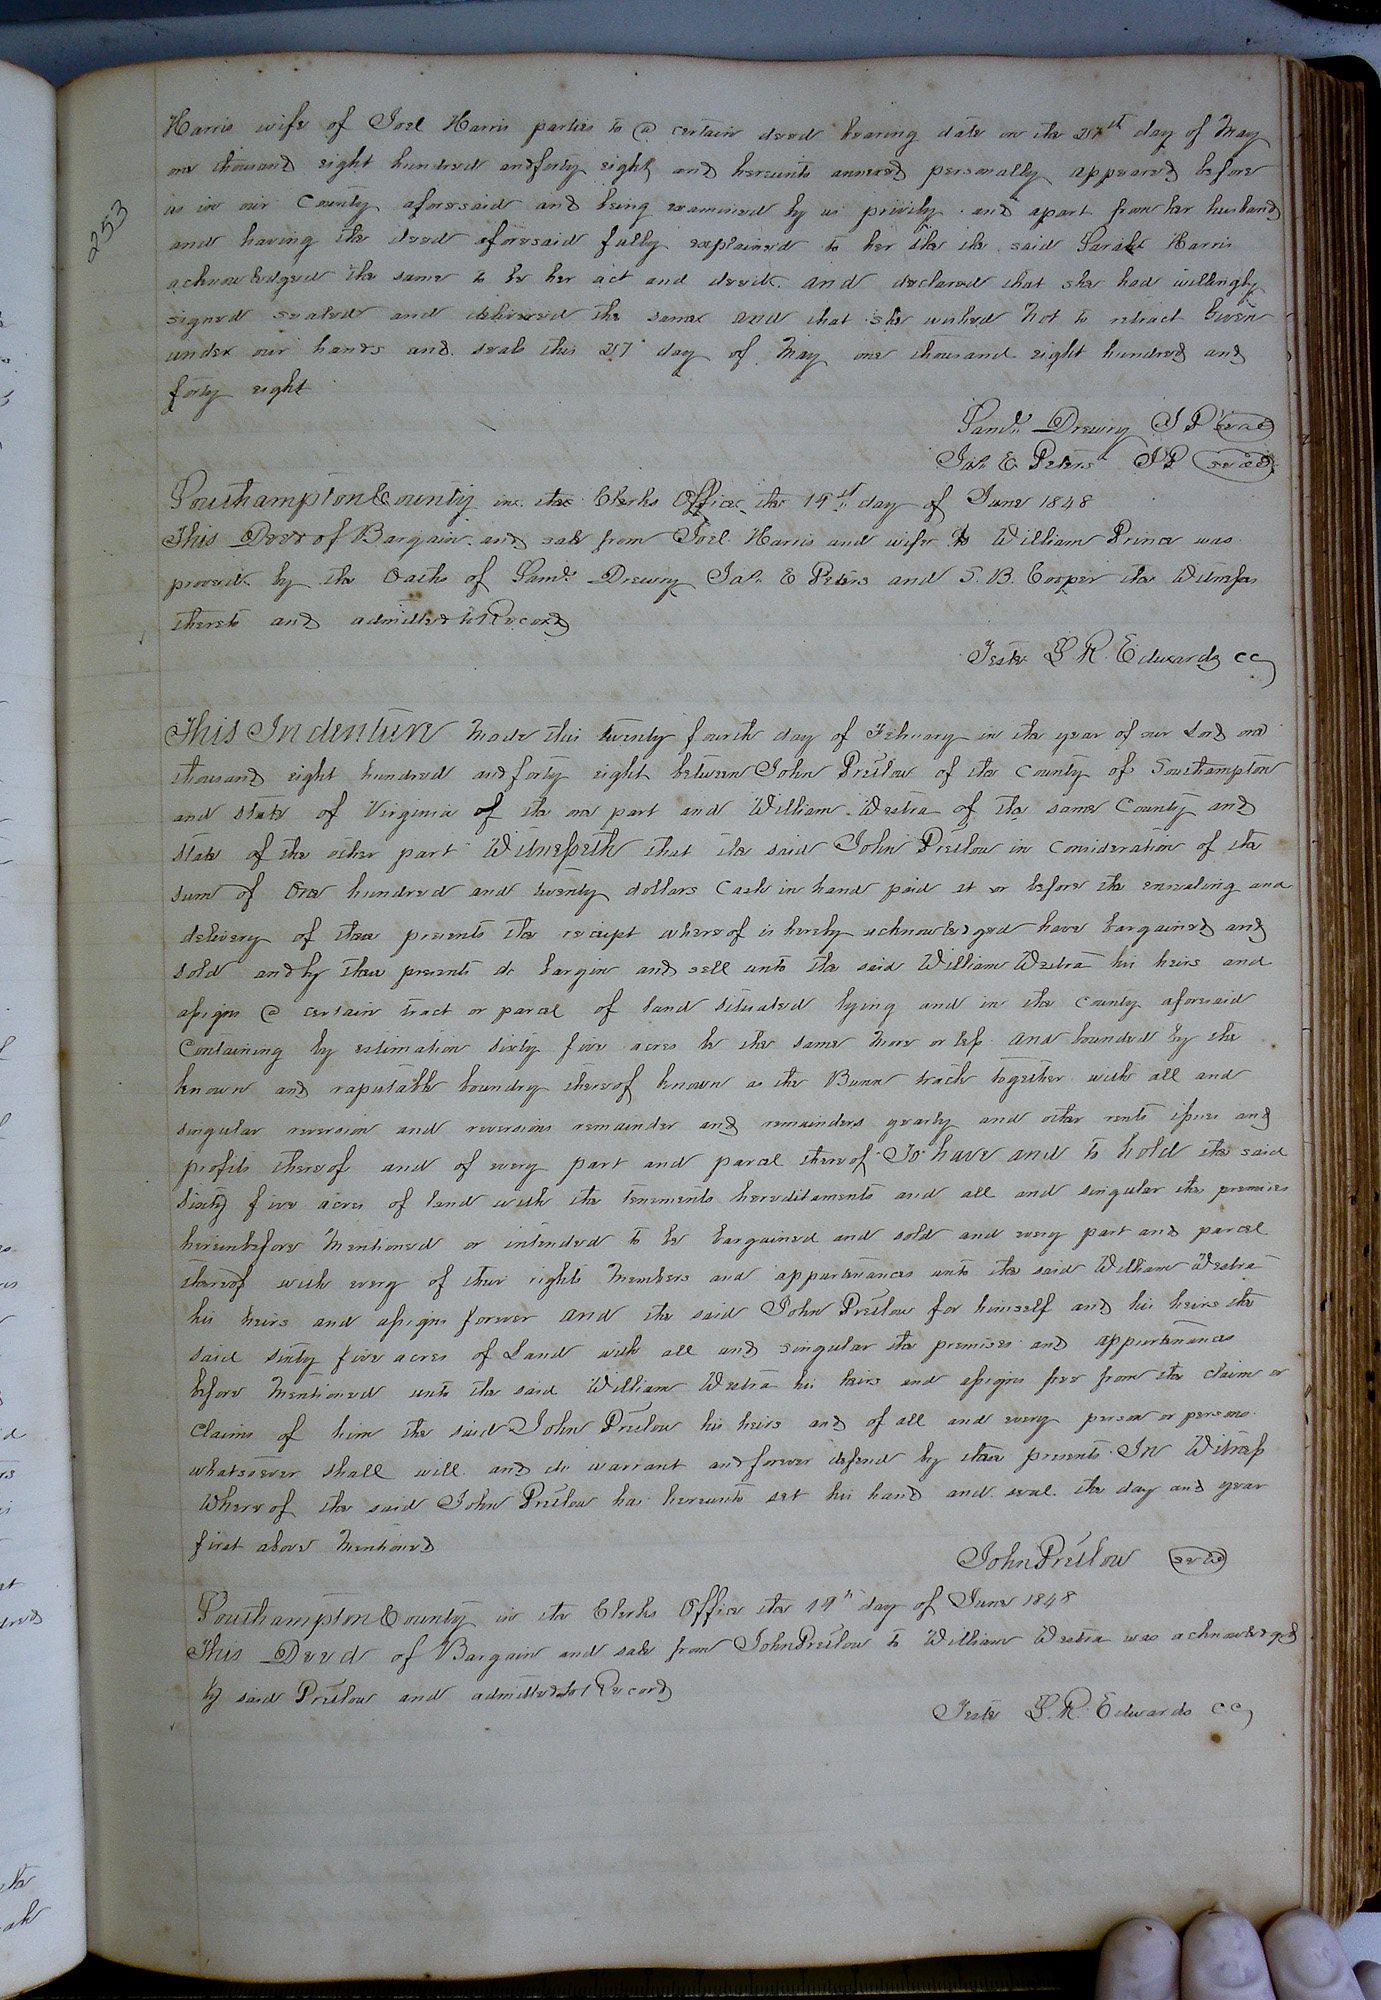 253
Harris wife of Joel Harris parties to @ certain deed bearing date on the 27th day of May
one thousand eight hundred and forty eight and hereunto annexed personally appeared before
us in our County aforesaid and being examined by us privily and apart from her husband
and having the deed aforesaid fully explained to her she the said Sarah Harris
acknowledged the same to be her act and deed and declared that she had willingly
signed sealed and delivered the same and that she wished not to retract Given
under our hands and seals this 27 day of May one thousand eight hundred and
forty eight
Saml. Drewry JP seal
Jas. E Peters JP seal
Southampton County in the Clerks Office the 19th day of June 1848
This Deed of Bargain and sale from Joel Harris and wife to William Prince was
proved by the Oaths of Saml. Drewry Jas. E Peters and S. B. Cooper the Witnesses
thereto and admitted to Record
Teste L. R. Edwards CC
This Indenture Made this twenty fourth day of February in the year of our Lord one
thousand eight hundred and forty eight between John Pretlow of the County of Southampton
and state of Virginia of the one part and William Westra of the same County and
state of the other part Witnesseth that the said John Pretlow in Consideration of the
sum of One hundred and twenty dollars Cash in hand paid at or before the ensealing and
delivery of these presents the receipt whereof is hereby acknowledged have bargained and
sold and by these presents do bargin and sell unto the said William Westra his heirs and
assigns @ certain tract or parcel of land situated lying and in the County aforesaid
Containing by estimation sixty five acres be the same More or less and bounded by the
known and raputable boundry thereof known as the Bunn track together with all and
singular reversion and reversions remainder and remainders yearly and other rents issues and
profits thereof and of every part and parcel thereof To have and to hold the said
sixty five acres of land with the tenements hereditaments and all and singular the premises
hereinbefore Mentioned or intended to be bargained and sold and every part and parcel
thereof with every of their rights Members and appurtenances unto the said William Westra
his heirs and assigns forever and the said John Pretlow for himself and his heirs the
said sixty five acres of Land with all and singular the premises and appurtenances
before Mentioned unto the said William Westra his heirs and assigns free from the claim or
Claims of him the said John Pretlow his heirs and of all and every person or persons
whatsoever shall will and do warrant and forever defend by these presents In Witness
Whereof the said John Pretlow has hereunto set his hand and seal the day and year
first above Mentioned
John Pretlow seal
Southampton County in the Clerks Office the 19th day of June 1848
This Deed of Bargain and sale from John Pretlow to William Westra was acknowledged
by said Pretlow and admitted to Record
Teste L. R. Edwards CC